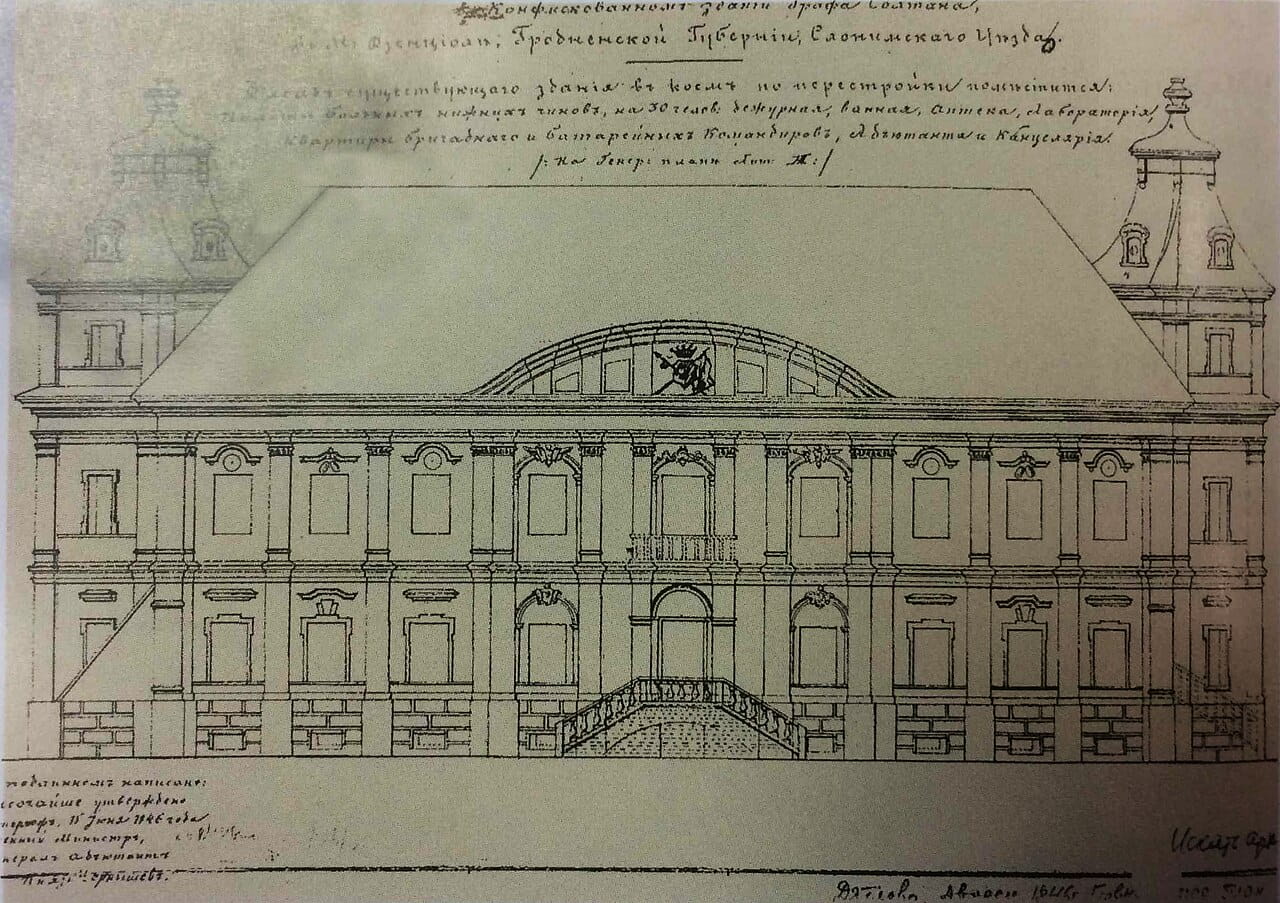 Конфискованномъ зданіи Графа Солтана,
Гродненской Губерніи, Слонимскаго Уѣзда.
Фасадъ существующаго зданія въ коемъ по перестройки помѣстится:
больныхъ нижнихъ чиновъ, на 30 челов: дежурная, ванная, Аптека, Лабораторія,
Квартиры бригаднаго и батарейныхъ Командировъ, Адъютанта и Канцелярія.
/: На Генер: планѣ Лит: Ж: /
написано:
утверждено
15 Іюня 1846 года
Министръ,
адъютантъ
Князь Чернышевъ.
Дятлово Дворец 1846г